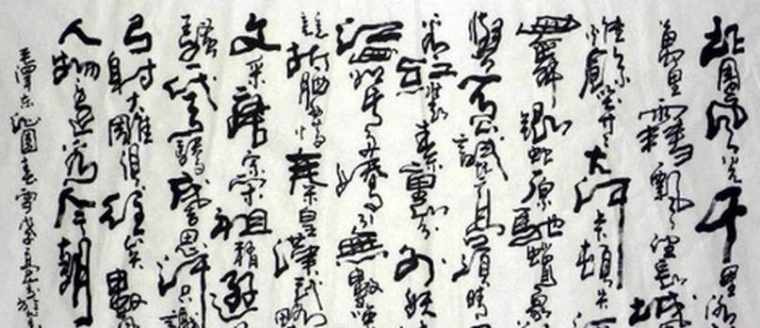 北国风光千里冰
万里雪飘望长城
惟余莽莽大河上下顿失
舞银蛇原驰蜡象
与天公试比高须晴
看红装素裹分外妖
江山如此多娇引无数英
竞折腰惜秦皇汉武略
文采唐宗宋祖稍逊
骚一代天骄成吉思汗只识
弓射大雕俱往矣数
人物还看今朝
毛泽东沁园春雪